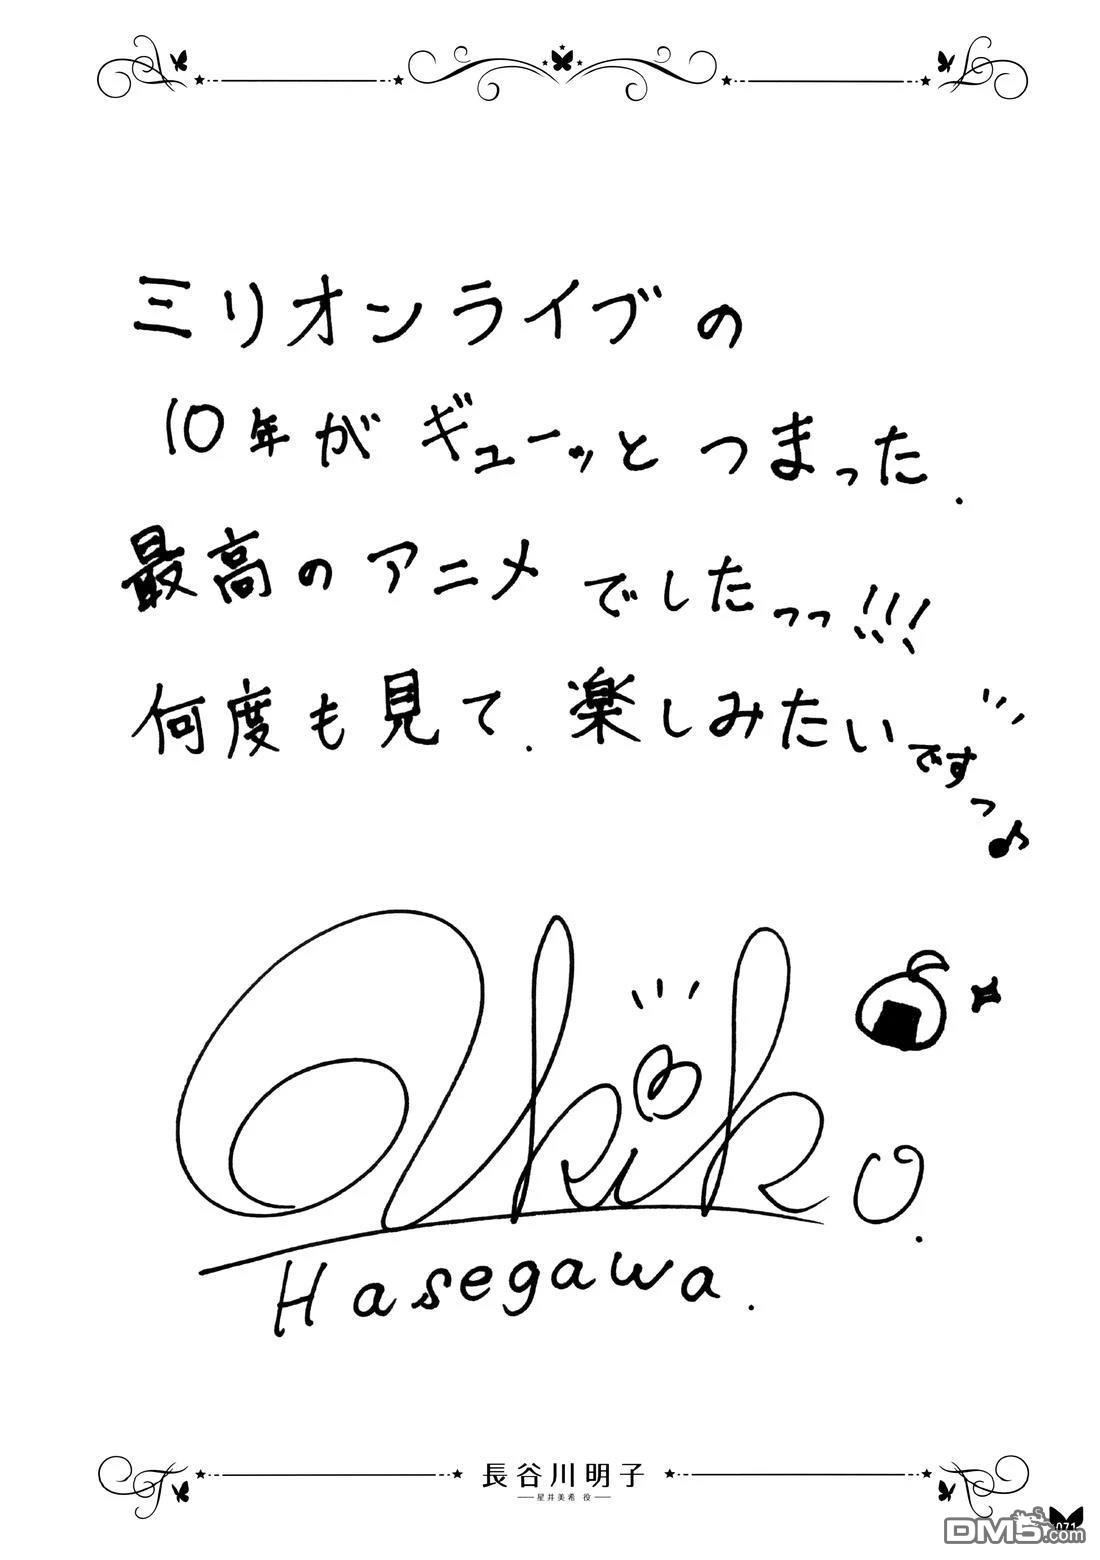 ミリオンライブの
10年がギューッとつまった.
最高のアニメでしたっっ!!!
何度も見て.楽しみたいですっ♪
Akiko.
Hasegawa.
長谷川明子
星井美希 役
071
DM5.com